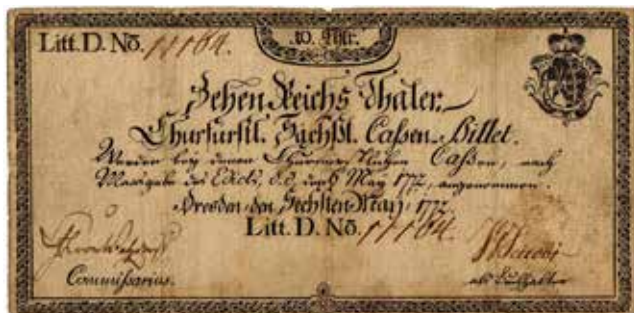 Litt. D. No. 11164.
10. Thlr.
Zehen Reichs Thaler.
Churfürstl. Sächßl. Caßen-Billet.
Werden bey denen Churfürstlichen Caßen, nach
Maasgabe des Edicts, d. d. den 6 May 1772, angenommen.
Dresden den Sechsten May 1772
Litt. D. No. 11164.
Commissarius.
als Buchhalter